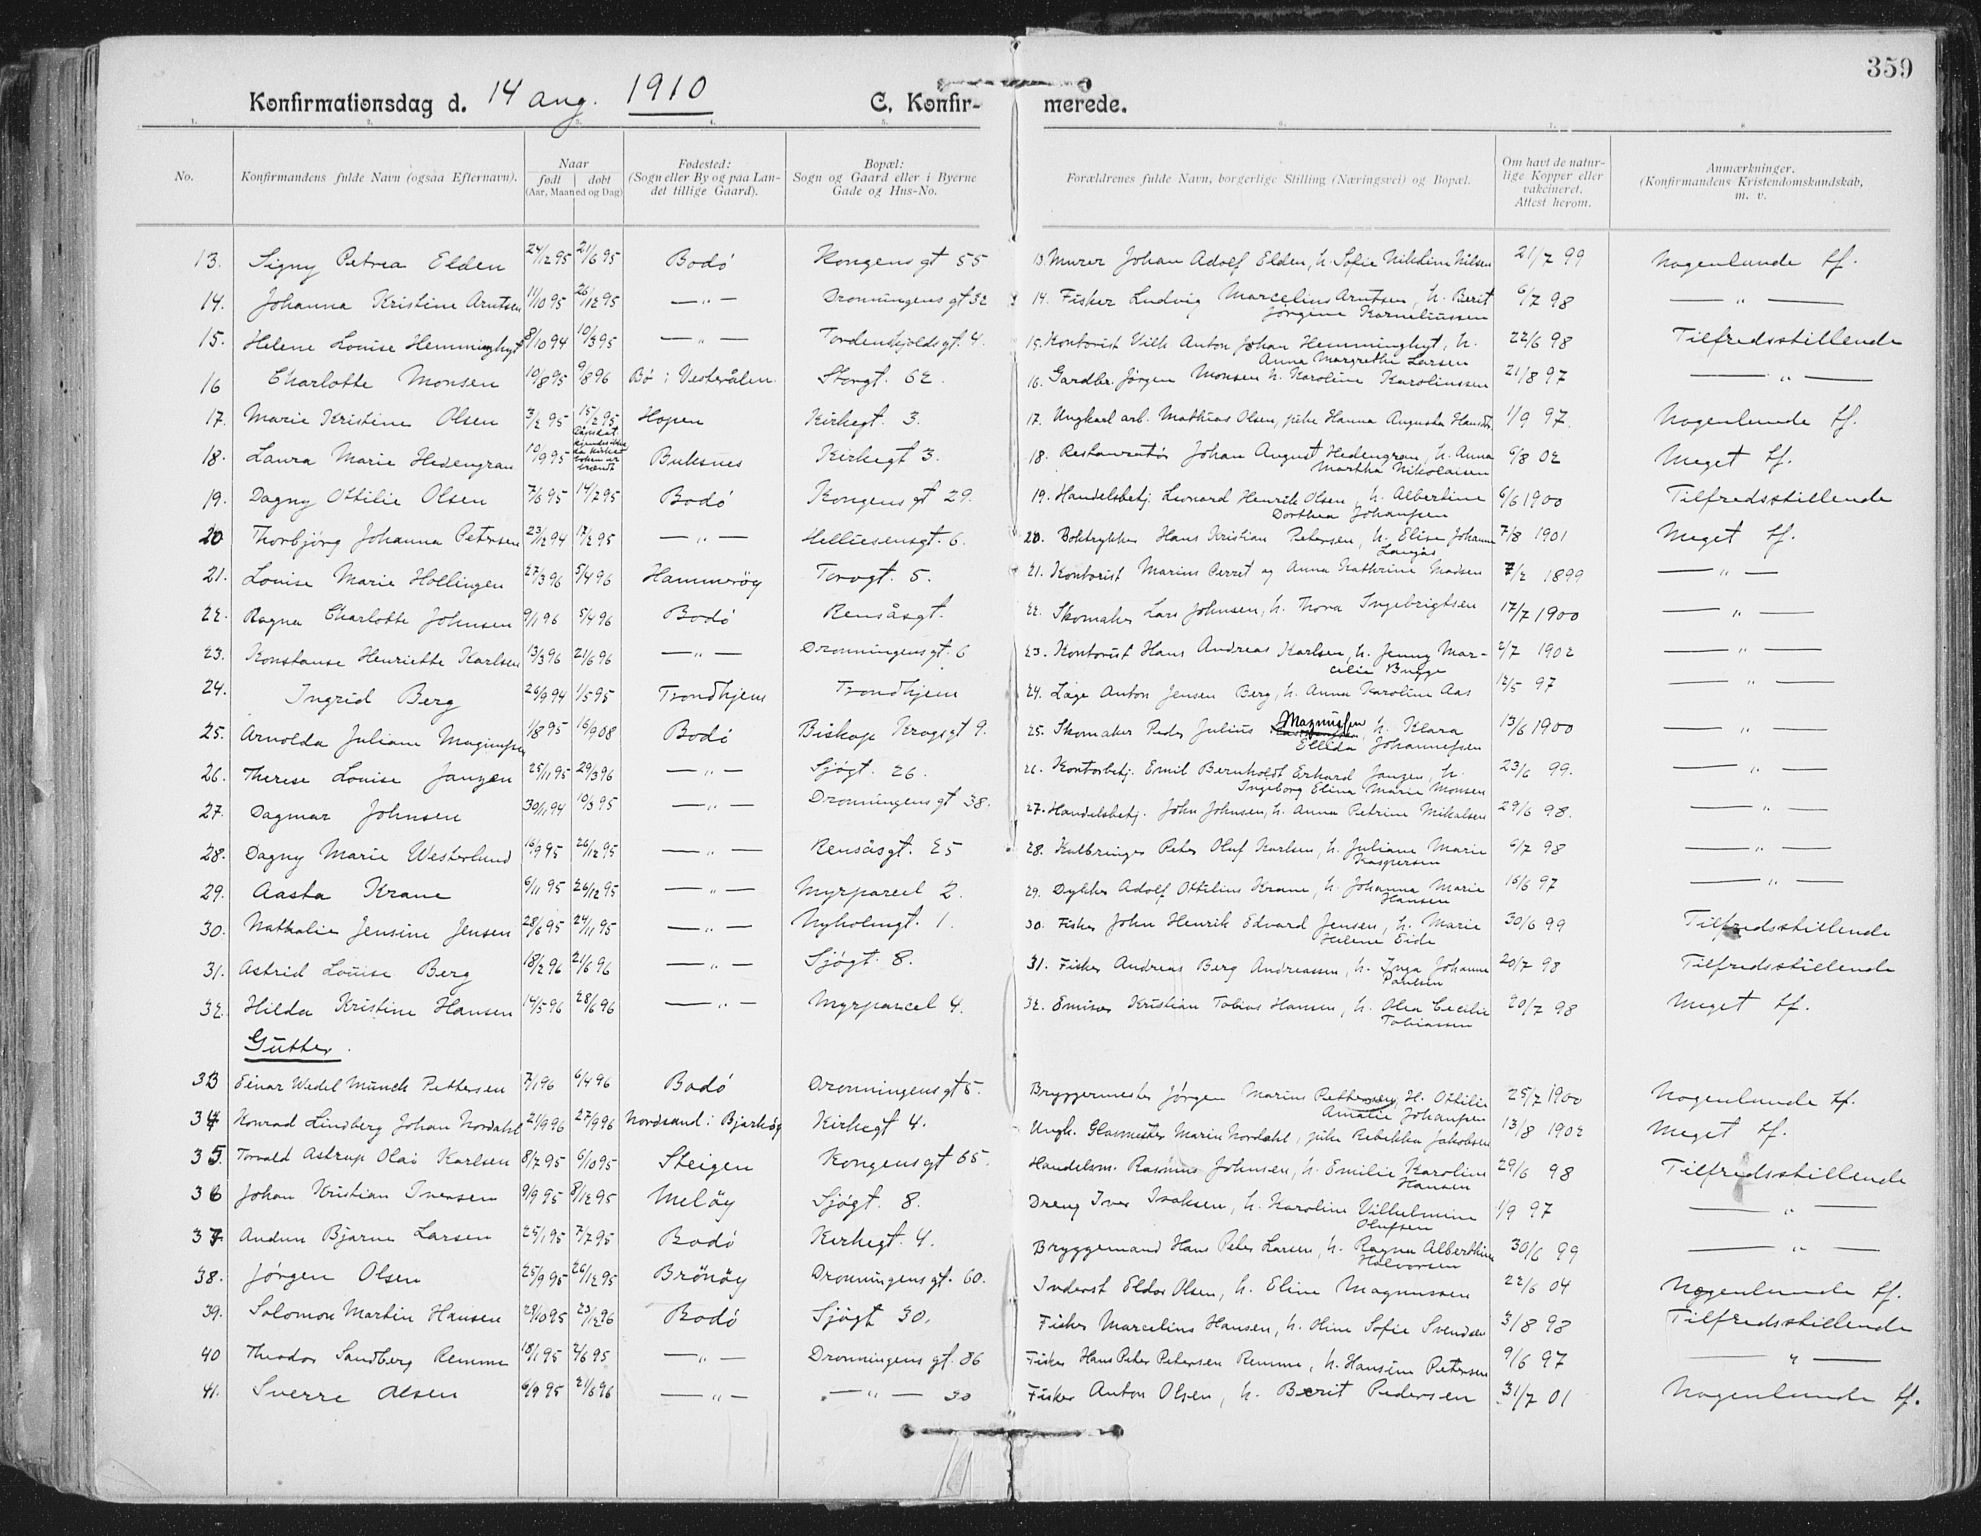 359
Konfirmationsdag d. 14 aug. 1910 C. Konfirmerede.
1. 2. 3. 4. 5. 6. 7. 8.
No. Konfirmandens fulde Navn (ogsaa Efternavn). Naar født døbt (Aar, Maaned og Dag) Fødested: (Sogn eller By og paa Landet tillige Gaard). Bopæl: Sogn og Gaard eller i Byerne Gade og Hus-No. Forældrenes fulde Navn, borgerlige Stilling (Næringsvei) og Bopæl. Om havt de naturlige Kopper eller vakcineret. Attest herom. Anmærkninger. (Konfirmandens Kristendomskundskab, m. v.
13. Signy Petrea Elden 24/12 95 21/6 95 Bodö Kongensgt 55 13. Murer Johan Adolf Elden, h. Sofie Nikoline Nilsen 21/7 99 Nogenlunde tf.
14. Johanna Kristine Arntsen 11/10 95 26/12 95 — " — Dronningensgt 32 14. Fisker Ludvig Marcelius Arntsen, h. Berit Jørgine Korneliussen 6/7 98 — " —
15. Helene Louise Hemminghyt 8/10 94 10/3 95 — " — Tordenskjoldsgt. 4. 15. Kontorist Vilh. Anton Johan Hemminghyt, h. Anna Margrethe Larsen 22/6 98 Tilfredsstillende
16 Charlotte Monsen 10/8 95 9/8 96 Bö i Vesterålen Storgt. 62. 16. Gardbr. Jørgen Monsen h. Karoline Karoliussen 21/8 97 — " —
17. Marie Kristine Olsen 3/2 95 15/2 95 Hopen Kirkegt. 3. 17. Ungkarl arb. Mathias Olsen, pike Hanna Augusta 1/9 97. Nogenlunde tf.
18. Laura Marie Hedengran 10/9 95 Buksnes Kirkegt 3. 18. Restauratør Johan August Hedengran, h. Anna Martha Nikolaisen 6/8 02 Meget tf.
19. Dagny Ottilie Olsen 7/6 95 14/2 95 Bodö Kongensgt 29. 19. Handelsbetj. Leonard Henrik Olsen, h. Albertine Dorthea Johansen 6/6 1900 Tilfredsstillende
20 Thorbjörg Johanna Petersen 23/12 94 17/2 95 — " — Helliesensgt. 6. 20. Boktrykker Hans Kristian Petersen, h. Elise Johanne 7/8 1901 Meget tf.
21. Louise Marie Hollingen 27/3 96 5/4 96 Hammeröy Torvgt. 5. 21. Kontorist Marius Perret og Anna Kathrine Madsen 7/2 1899 — " —
22. Ragna Charlotte Johnsen 9/1 96 5/4 96 Bodö Rensåsgt. 22. Skomaker Lars Johnsen, h. Thora Ingebrigtsen 17/7 1900 — " —
23. Konstanse Henriette Karlsen 13/3 96 21/6 96 — " — Dronningensgt. 6 23. Kontorist Hans Andreas Karlsen, h. Jenny Marcilie Bugge 2/7 1902 — " —
24. Ingrid Berg 26/9 94 1/5 95 Trondhjem Trondhjem 24. Læge Anton Jensen Berg, h. Anna Karoline Aas 12/5 97 — " —
25. Arnolda Juliane Magnussen 1/8 95 16/9 08 Bodö Biskop Krogsgt 9. 25. Skomaker Peder Julius Magnussen, h. Klara Ellida Johannessen 13/6 1900 — " —
26. Therese Louise Jangen 25/11 95 29/3 96 — " — Sjögt. 26. 26. Kontorbetj. Emil Bernholdt Erhard Jangen, h. Ingeborg Elina Marie Monsen 23/6 99. — " —
27. Dagmar Johnsen 30/11 94 10/3 95 — " — Dronningensgt 38. 27. Handelsbetj. John Johnsen, h. Anna Petrine Mikalsen 29/6 98. — " —
28. Dagny Marie Westerlund 16/9 95 26/12 95 — " — Rensåsgt. 25 28. Kulbringer Peter Oluf Karlsen, h. Juliane Marie Kaspersen 6/7 98 — " —
29. Aasta Krane 6/11 95 26/12 95 — " — Myrparcel 2. 29. Dykker Adolf Ottilius Krane, h. Johanna Marie Hansen 15/6 97 — " —
30. Nathalie Jensine Jensen 28/6 95 24/11 95 — " — Nyholmgt. 1. 30. Fisker John Henrik Edvard Jensen, h. Marie Helene Eide 30/6 99 Tilfredsstillende
31. Astrid Louise Berg 18/2 96 21/6 96 — " — Sjögt. 8. 31. Fisker Andreas Berg Andreassen, h. Inga Johanne Paulsen 20/7 98 Tilfredsstillende
32. Hilda Kristine Hansen 14/5 96 28/6 96 — " — Myrparcel 4. 32. Kristian Tobias Hansen, h. Olea Cecilie Tobiassen 20/7 98 Meget tf.
Gutter.
33 Einar Wedel Münch Pettersen 7/1 96 6/4 96 Bodö Dronningensgt 5. Bryggermester Jørgen Marius Pettersen, H. Ottilie Amalie Johansen 25/7 1900 Nogenlunde tf.
34 Konrad Lindberg Johan Nordahl 21/9 96 27/9 96 Nordsand i Bjarköy Kirkegt 4. Ungk. Glasmester Marin Nordahl, pike Rebekka Jakobsen 13/8 1902 Meget tf.
35. Torvald Astrup Olai Karlsen 8/7 95 6/10 95 Steigen Kongensgt 65. Handelsm. Rasmus Johnsen, h. Emilie Karoline Hansen 29/6 98 Tilfredsstillende
36 Johan Kristian Iversen 9/9 95 8/12 95 Melöy Sjögt. 8. Dreng Iver Isaksen, h. Karoline Vilhelmine Olufsen 1/9 97 — " —
37. Audun Bjarne Larsen 25/1 95 7/7 95 Bodö Kirkegt. 4. Bryggemand Hans Peter Larsen, h. Ragna Alberthine Halvorsen 30/6 99 — " —
38. Jörgen Olsen 25/9 95 26/12 95 Brönöy Dronningensgt. 60. Inderst Eldor Olsen, h. Eline Magnussen 22/6 04 Nogenlunde tf.
39. Salomon Martin Hansen 29/10 95 23/12 96 Bodö Sjögt 30. Fisker Marcelius Hansen, h. Oline Sofie Svendsen 3/8 98 Tilfredsstillende
40 Theodor Sandberg Remme 18/1 95 2/6 95 — " — Dronningensgt. 86 Fisker Hans Peter Petersen Remme, h. Hansine Petersen 9/6 97 — " —
41. Sverre Olsen 6/9 95 21/6 96 — " — — " — 30 Fisker Anton Olsen, h. Berit Pedersen 31/7 01 Nogenlunde tf.